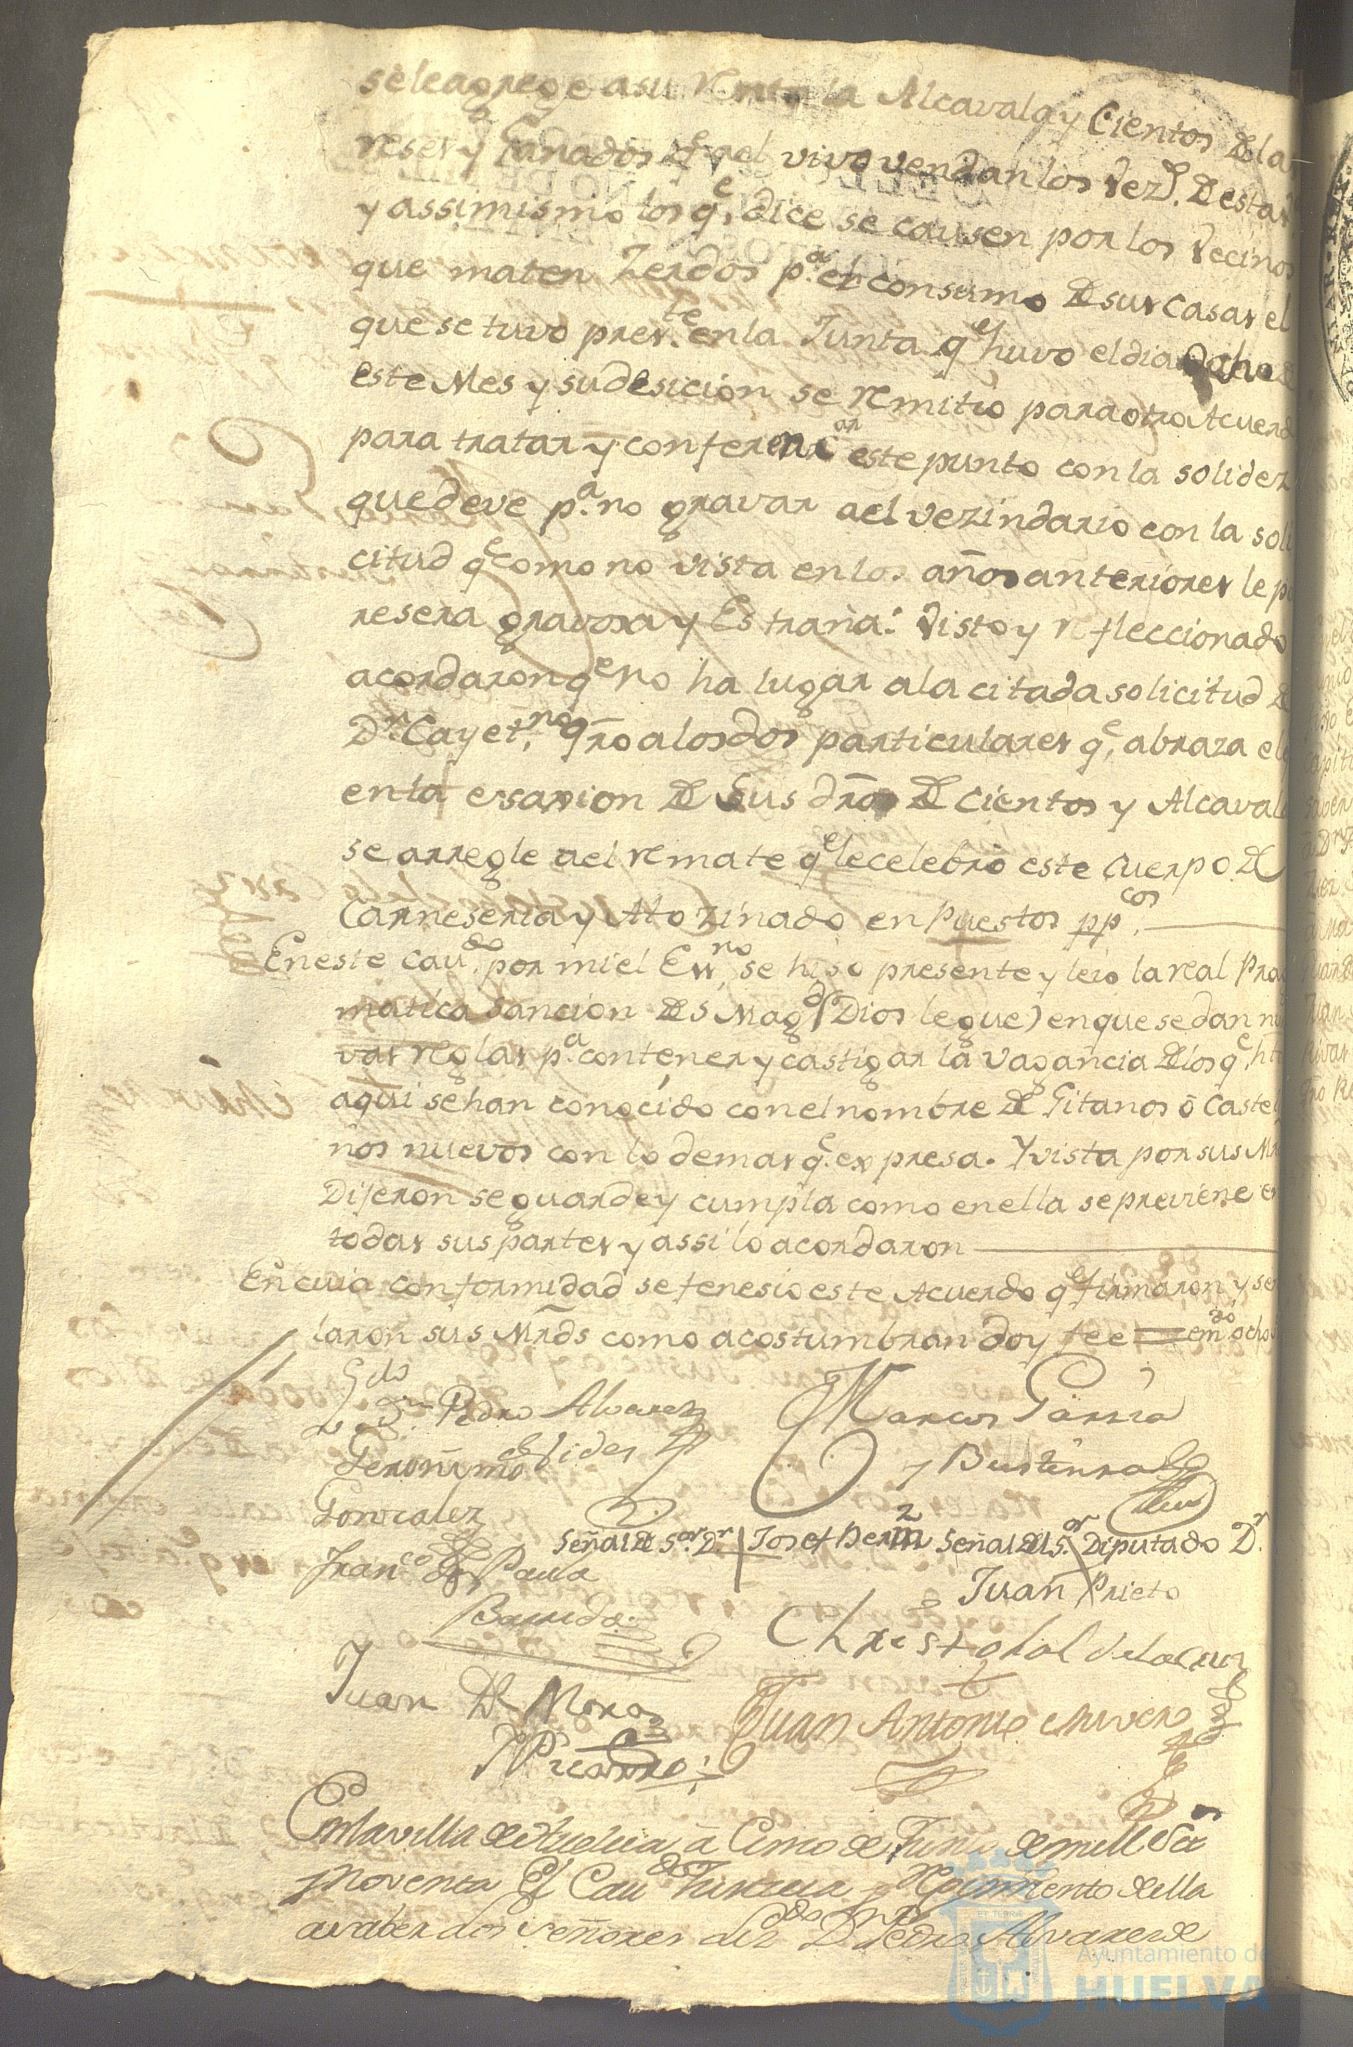 se le agrege a su Renta la Alcavala y Cientos de la
reses y Ganados qe. ael vivo vendan los Vezs. de esta
y assimismo los qe. dice se causen por los Vecinos
que maten Zerdos pa. el consumo de sus casas el
que se tuvo preste. en la Junta qe. huvo el dia Ocho
este Mes y su desicion se remitio para otro Acuerd
para tratar y conferenciar este punto con la solidez
que deve pa. no gravar ael vezindario con la soli
citud qe. como no vista en los años anteriores le pa
resera gravosa y Estraña: Visto y refleccionado
acordaron qe. no ha lugar a la citada solicitud de
Dn. Cayetno. Qro a los dos particulares qe. abraza el
en la esasion de sus dros de Cientos y Alcaval
se arregle ael remate qe. le celebro este Cuerpo de
Carneseria y Atozinado en Puestos ppcos.
En este Caudo. por mi el Essno. se hiso presente y leio la real Prag
matica sancion de S Magd. (Dios le gue) en que se dan nu
vas reglas pa. contener y castigar la vagancia de los qe. hta
aqui se han conocido con el nombre de Gitanos ó Castella
nos nuevos con lo demas qe. expresa. Y vista por sus Mrds
Dijeron se guarde y cumpla como en ella se previene en
todas sus partes y assi lo acordaron
En cuia conformidad se fenesio este Acuerdo qe. firmaron y señ
laron sus Mrds como acostumbran doy fee = emdo ocho
Lzdo Dn Pedro Alvarez
Marcos Garsia
Geronimo
y Bustinza
Gonzalez
Señal de Sor. Dr. Josef Hernz Señal del Sor. Diputado Dr.
Franco de Paula
Juan Prieto
Barreda
Christobal de la Cruz
Juan de Mora
Juan Antonio Chuvero
Picarro
En la villa de Huelva á Cinco de Junio de mill Settos
Noventa El Caudo Justicia y Regimiento de ella
a saber los Señores Lizdo Dn Pedro Alvarez de
Ayuntamiento de
HUELVA